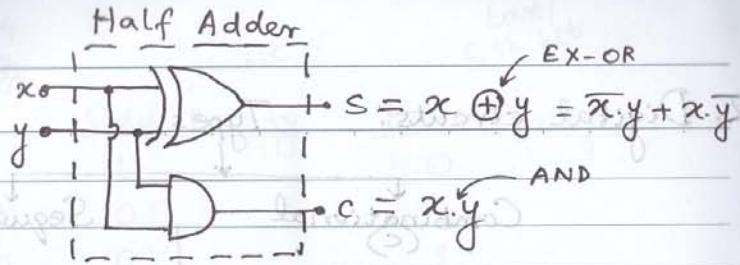 Half Adder
EX-OR
x
S = x ⊕ y = x̅.y + x.y̅
y
AND
C = x.y